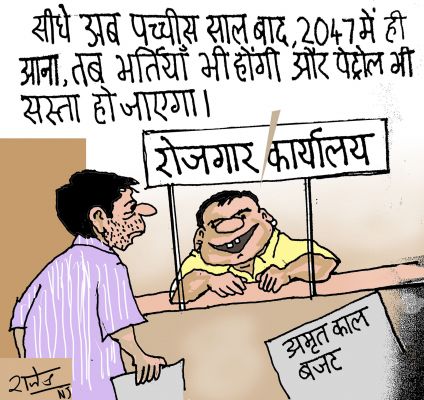 सीधे अब पच्चीस साल बाद, 2047 में ही
आना, तब भर्तियाँ भी होंगी और पेट्रोल भी
सस्ता हो जाएगा।
रोजगार कार्यालय
अमृत काल
बजट